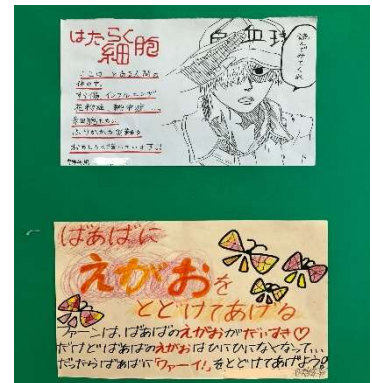 はたらく
細胞
白血球
読んでみてね
ここは とある人間の
体の中。
すり傷 インフルエンザ
花粉症 熱中症…
ばあばに
えがおを
とどけてあげる
ファーンは、ばあばのえがおがだいすき♡
だけどばあばのえがおはひにひになくなって…
だったらばあばに「ワァーイ!」をとどけてあげよう!